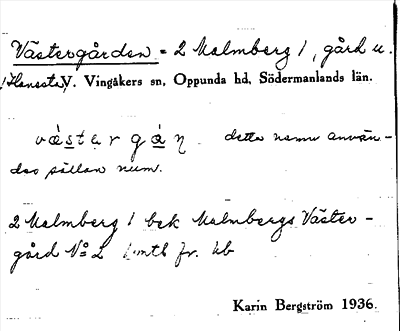 Västergården = 2 Malmberg 1, gård u.
Hansesta, V. Vingåkers sn, Oppunda hd, Södermanlands län.
västərgán detta namn använ-
das sällan num.
2 Malmberg 1 bek Malmbergs Väster-
gård No 2 fr. kb
Karin Bergström 1936.